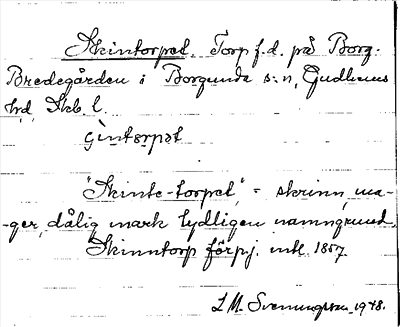 Skintorpet. Torp f.d. på Borg.
Bredegården i Borgunda s:n, Gudhems
hd, Skb. l.
"Skinte-torpet", = skrinn, ma-
-ger, dålig mark tydligen namngrund.
Skinntorp förpj. intl. 1857
1948.